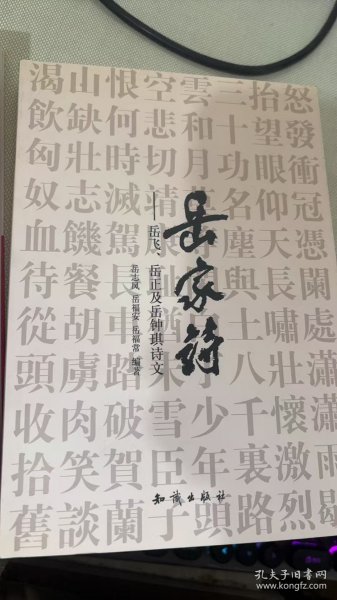 岳家诗
——岳飞、岳正及岳钟琪诗文
岳志凤 岳福安 岳福常 编著
知識出版社
怒發衝冠憑闌處瀟瀟雨歇
抬望眼仰天長嘯壯懷激烈
三十功名塵與土八千裏路
雲和月
少年頭
空悲切靖
雪臣子
恨何時滅駕長車踏破賀蘭
山缺壯志饑餐胡虜肉笑談
渴飲匈奴血待從頭收拾舊
孔夫子旧书网